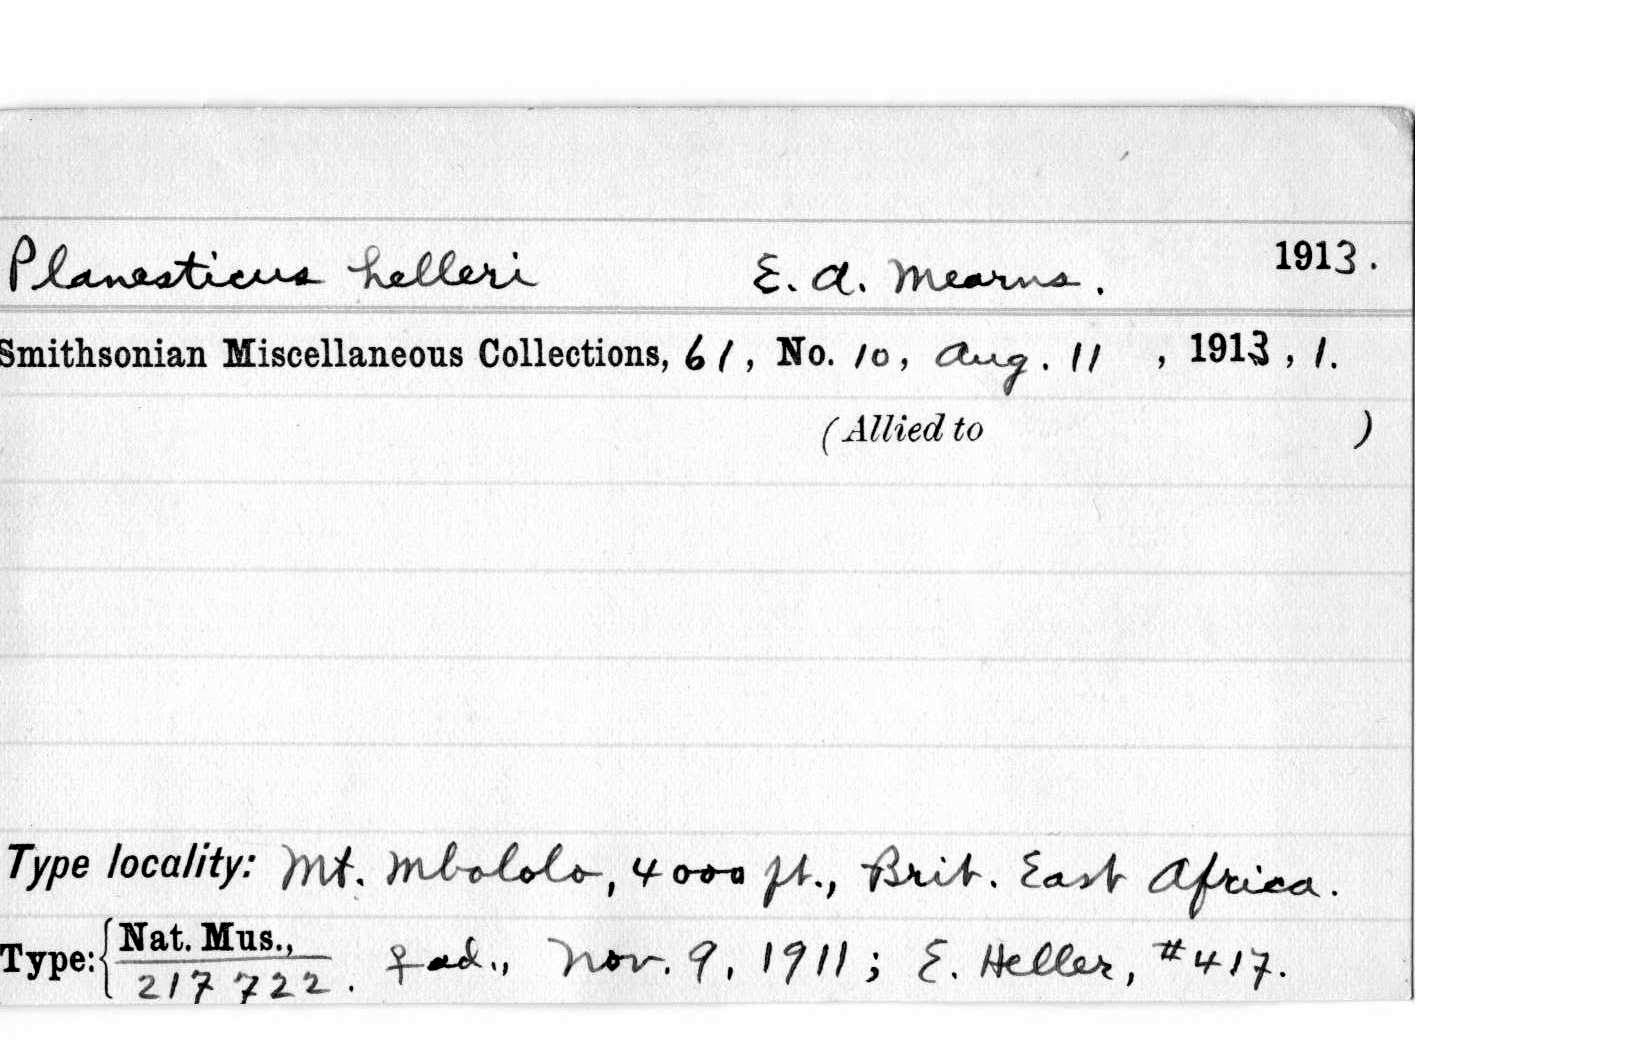 Planesticus helleri E. A. Mearns. 1913.
Smithsonian Miscellaneous Collections, 61, No. 10, Aug. 11, 1913, 1.
(Allied to )
Type locality: Mt. Mbololo, 4000 ft., Brit. East Africa.
Type: { Nat. Mus.,
217722. ♀ ad., Nov. 9, 1911; E. Heller, #417.